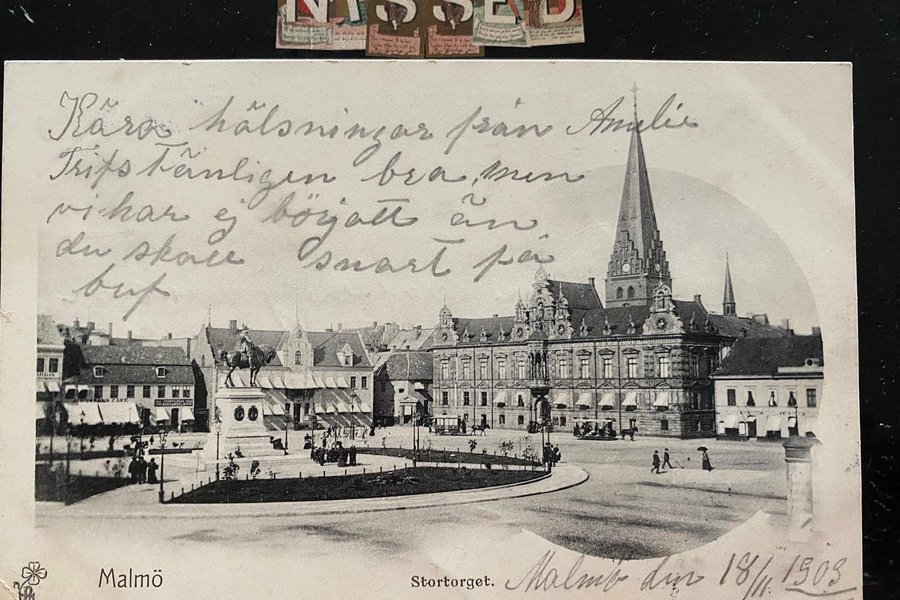 NISSED
Kära hälsningar från Amelie
Trifs tänligen bra, men
vi har ej börjatt än
du skall snart på
buf
Malmö
Stortorget.
Malmö den 18/11 1903